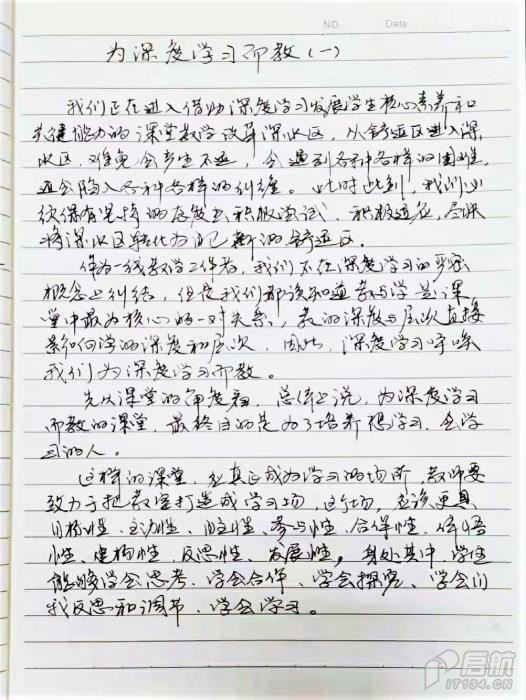 NO. Date
为深度学习而教(一)
我们正在进入借助深度学习发展学生核心素养和
关键能力的课堂教学改革深水区,从舒适区进入深
水区,难免会产生不适,会遇到各种各样的困难,
还会陷入各种各样的纠缠。此时此刻,我们必
须保有坚持的态度去积极尝试、积极适应,尽快
将深水区转化为自己新的舒适区。
作为一线教学工作者,我们不在深度学习的
概念上纠结,但是我们都该知道教与学是课
堂中最为核心的一对关系,教的深度与层次直接
影响学的深度和层次,因此,深度学习呼唤
我们为深度学习而教。
先从课堂的角度看,总体上说,为深度学习
而教的课堂,最终目的是为了培养想学习、会学
习的人。
这样的课堂,应真正成为学习的场所,教师要
致力于把教室打造成学习场,这个场,应该更具
目标性、主动性、自主性、参与性、合作性、体悟
性、建构性、反思性、发展性,身处其中,学生
能够学会思考、学会合作、学会探究、学会自
我反思和调节、学会学习。
启航
IT134.CN